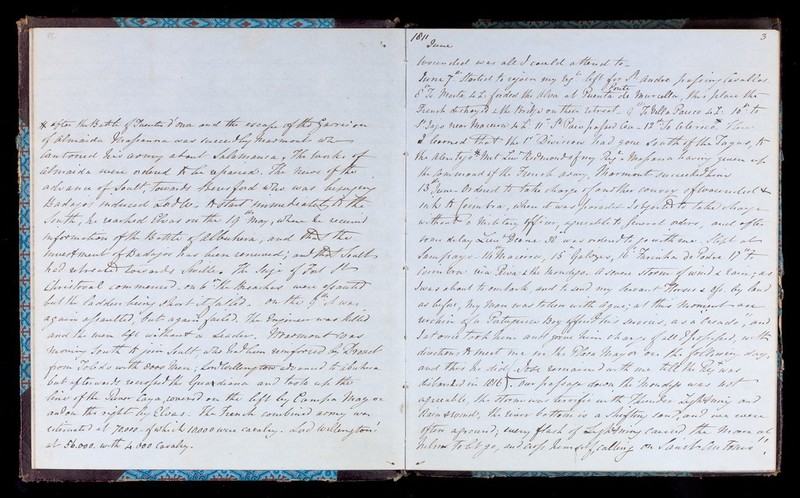 & after the Battle of Fuentes d'onor and the escape of the Garrison
of Almaida Massena was succeed by Marmont who
cantoned his army about Salamanca, the works of
Almaida were ordered to be repaired. The news of the
advance of Soult towards who was besieging
Badajos induced Lord W. to start immediately to the
South, he reached Elvas on the 19th May, where he received
information of the Battle of Albuhera, and that the
Investment of Badajos had been renewed; and that Soult
had retreated towards Seville. The Siege of Fort St
Christoval commenced. on 6th the Breaches were assaulted
but the ladders being short it failed. on the 9th it was
again assaulted, but again failed. The Engineer was killed
and the men left without a Leader. Marmont was
moving South to join Soult, who had been reinforced by Drouet
from Toledo with 8000 Men; Lord Wellington advanced to Albuhera
but afterwards recrossed the Guardiana and took up the
line of the River Caya, covered on the left by Campo Mayor
and on the right by Elvas. The French combined army were
estimated at 70000. of which 10000 were cavalry. Lord Wellington's
at 56.000. with 4.000 Cavalry.
1811
3
June
Wounded was all I could attend to
June 7th Started to rejoin my Regt left for St Andre passing Casallas
8th To Moita 4 L. forded the Alva at Ponte de Murcella, this place the
French destroyed & the Bridge on their retreat. 9th To Villa 4 L. 10th to
St Jago near 4 L. 11th St passed Cea - 12th To Celorico. Here
I learned that the 1st Division had gone South of the Tagus, to
the Alentejo. Met Lieut Redmond of my Regt - Massena having given up
the command of the French army, Marmont succeeded him
13th June. Ordered to take charge of another convoy of wounded &
sick to Coimbra, when it was I objected to take charge
without a Military officer, agreeable to General orders, and after
some delay Lieut Deane 38 was ordered to go with me. Slept at
Sampayo. 14th 15th Galizes, 16th de Podre 17th to
Coimbra via & the Mondego. A severe storm of wind & rain; as
I was about to embark, and to send my Servant Horses &c. by land
as before, my Man was taken with Ague; at this moment an
urchin of a Portuguese Boy offered his services, as a Creado", and
I at once took him and gave him charge of all I possessed, with
directions to meet me in the Plaza Mayor on the following day,
and this he did, remained with me till the Regt was
disbanded in 1816. Our passage down the Mondego was not
agreeable, the storm was terrific with Thunder Lightning and
Rain & wind; the river bottom is a shifting sand, and we were
often aground; every flash of Lightning caused the Man at
helm to let go, and cross himself, calling on "Sancta Antonio"!